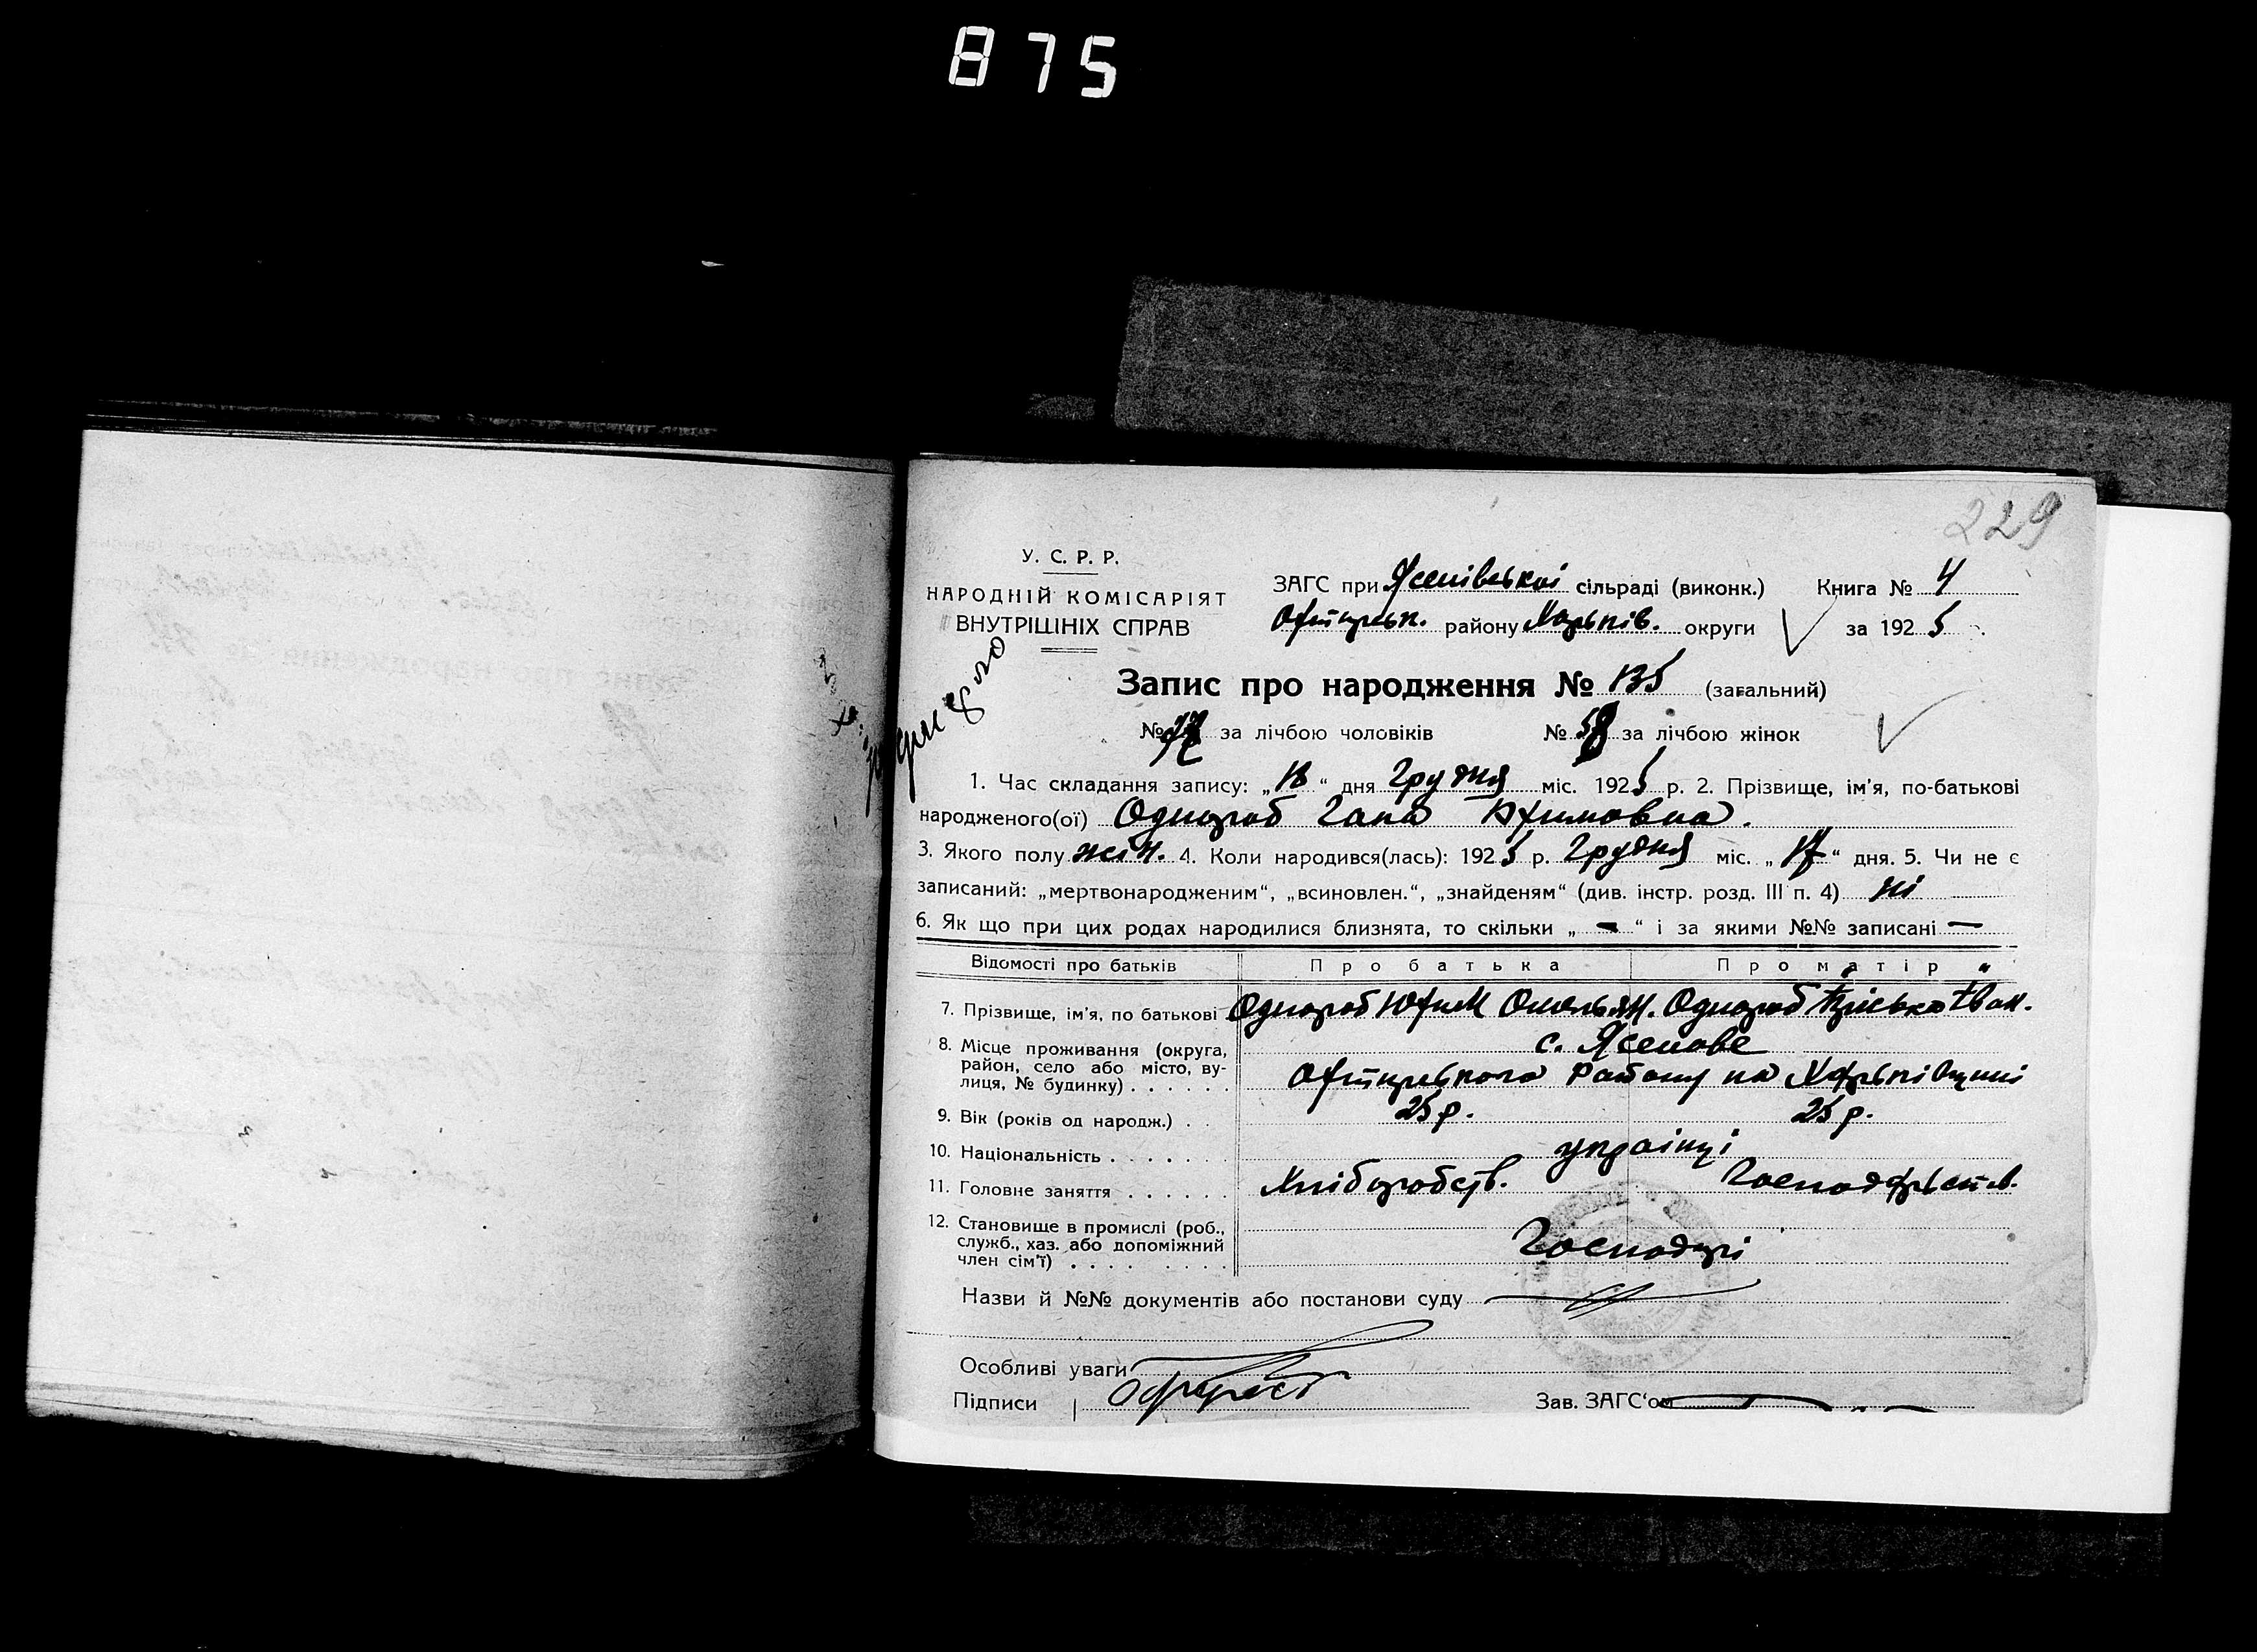 875
229
У. С. Р. Р.
НАРОДНІЙ КОМІСАРІЯТ
ВНУТРІШНІХ СПРАВ
ЗАГС при Ясенівській сільраді (виконк.) Книга № 4
району Харьків. округи за 1925
Запис про народження № 135 (загальний)
№ 77 за лічбою чоловіків № 58 за лічбою жінок
1. Час складання запису: „18“ дня Грудня міс. 1925 р. 2. Прізвище, ім'я, по-батькові
народженого(ої) Однороб Гапа
3. Якого полу жін. 4. Коли народився(лась): 1925 р. Грудня міс. „17“ дня. 5. Чи не є
записаний: „мертвонародженим“, „всиновлен.“, „знайденям“ (див. інстр. розд. III п. 4) ні
6. Як що при цих родах народилися близнята, то скільки „ - “ і за якими №№ записані —
Відомості про батьків Про батька Про матір
7. Прізвище, ім'я, по батькові Однороб Юфим Омельян. Однороб Іван.
8. Місце проживання (округа, район, село або місто, вулиця, № будинку) с. Ясенове
району на Харьківщині
9. Вік (років од народж.) 25 р. 25 р.
10. Національність українці
11. Головне заняття Хліборобств. Господарств.
12. Становище в промислі (роб., служб., хаз. або допоміжний член сім'ї) Господарі
Назви й №№ документів або постанови суду
Особливі уваги
Підписи Зав. ЗАГС'ом